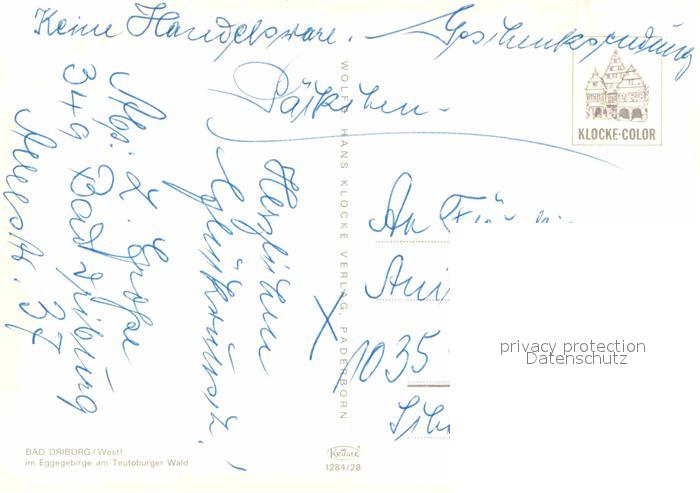 Keine Handelsware. – Geschenksendung
Päckchen –
KLOCKE-COLOR
Herzlichen
Glückwunsch!
Abs. L. Große
349 Bad Driburg
37
WOLFF HANS KLOCKE VERLAG, PADERBORN
An
X 1035
privacy protection
Datenschutz
BAD DRIBURG/Westf.
im Eggegebirge am Teutoburger Wald
Krüger
1284/28